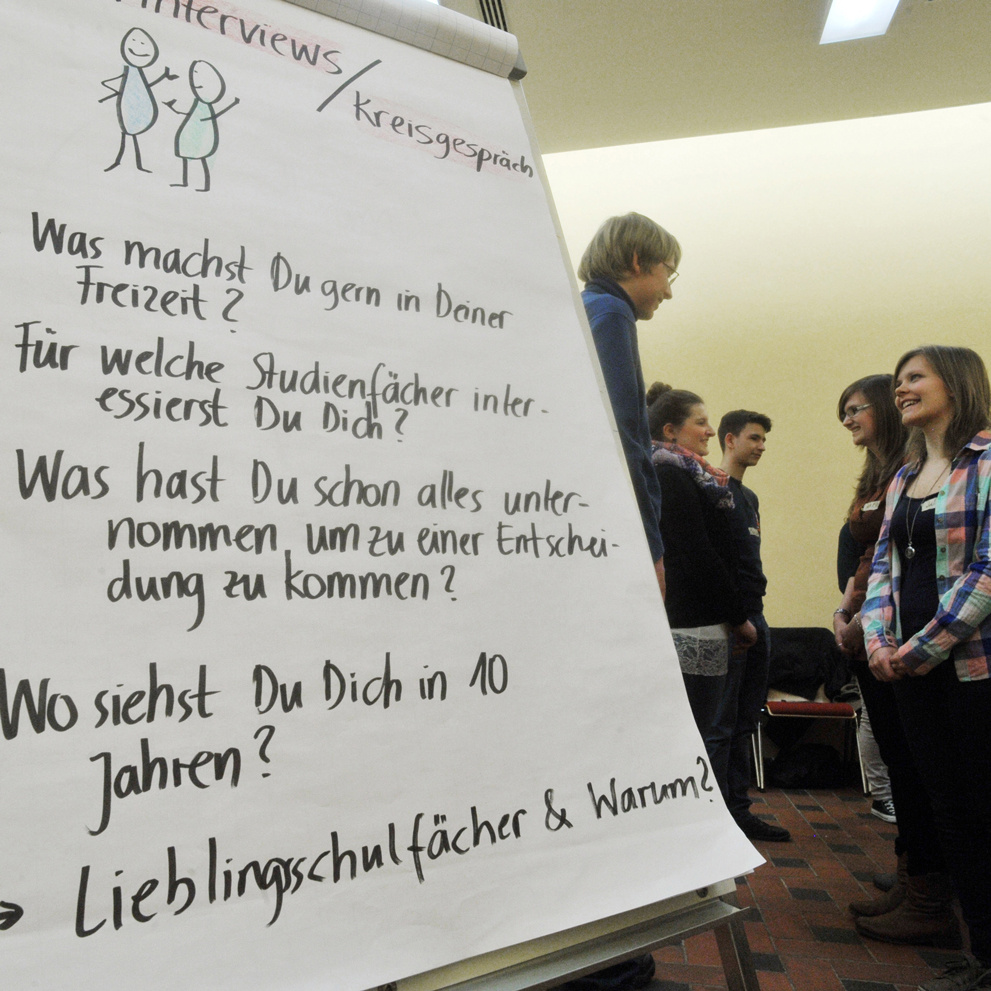 Interviews /
Kreisgespräch
Was machst Du gern in Deiner
Freizeit?
Für welche Studienfächer inter-
essierst Du Dich?
Was hast Du schon alles unter-
nommen, um zu einer Entschei-
dung zu kommen?
Wo siehst Du Dich in 10
Jahren?
→ Lieblingsschulfächer & Warum?